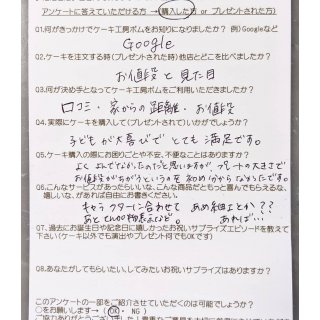 アンケートに答えていただける方 → 購入した方 or プレゼントされた方)
Q1.何がきっかけでケーキ工房ボムをお知りになりましたか? 例)Googleなど
Google
Q2.ケーキを注文する時(プレゼントされた時)他店とどこを比べましたか?
お値段と見た目
Q3.何が決め手となってケーキ工房ボムをご利用いただきましたか?
口コミ・家からの距離・お値段
Q4.実際にケーキを購入して(プレゼントされて)いかがでしたか?
子どもが大喜びでとても満足です。
Q5.ケーキ購入の際にお困りごとや不安、不便なことはありますか?
よくよんでなかったのだと思いますがプレートの大きさで
お値段がちがうというのを初め分からなかったです。
Q6.こんなサービスがあったらいいな、こんな商品だともっと喜んでもらえるな、
嬉しいな、があれば自由にお書きください。
キャラクターに合わせて あめ細工とか??
あれば…
Q7.過去にお誕生日や記念日に嬉しかったお祝いサプライズエピソードを教えて
下さい(ケーキ以外でも演出やプレゼント何でもOKです)
Q8.あなたがしてもらいたい、してみたいお祝いサプライズはありますか?
このアンケートの一部をご紹介させていただくのは可能でしょうか?
○をお願いします→( OK ・ NG )